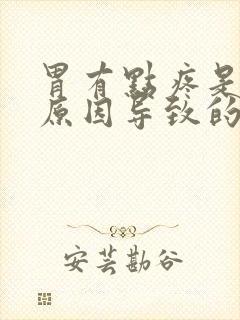 胃有點疼是
原因导致的
安芸勘谷